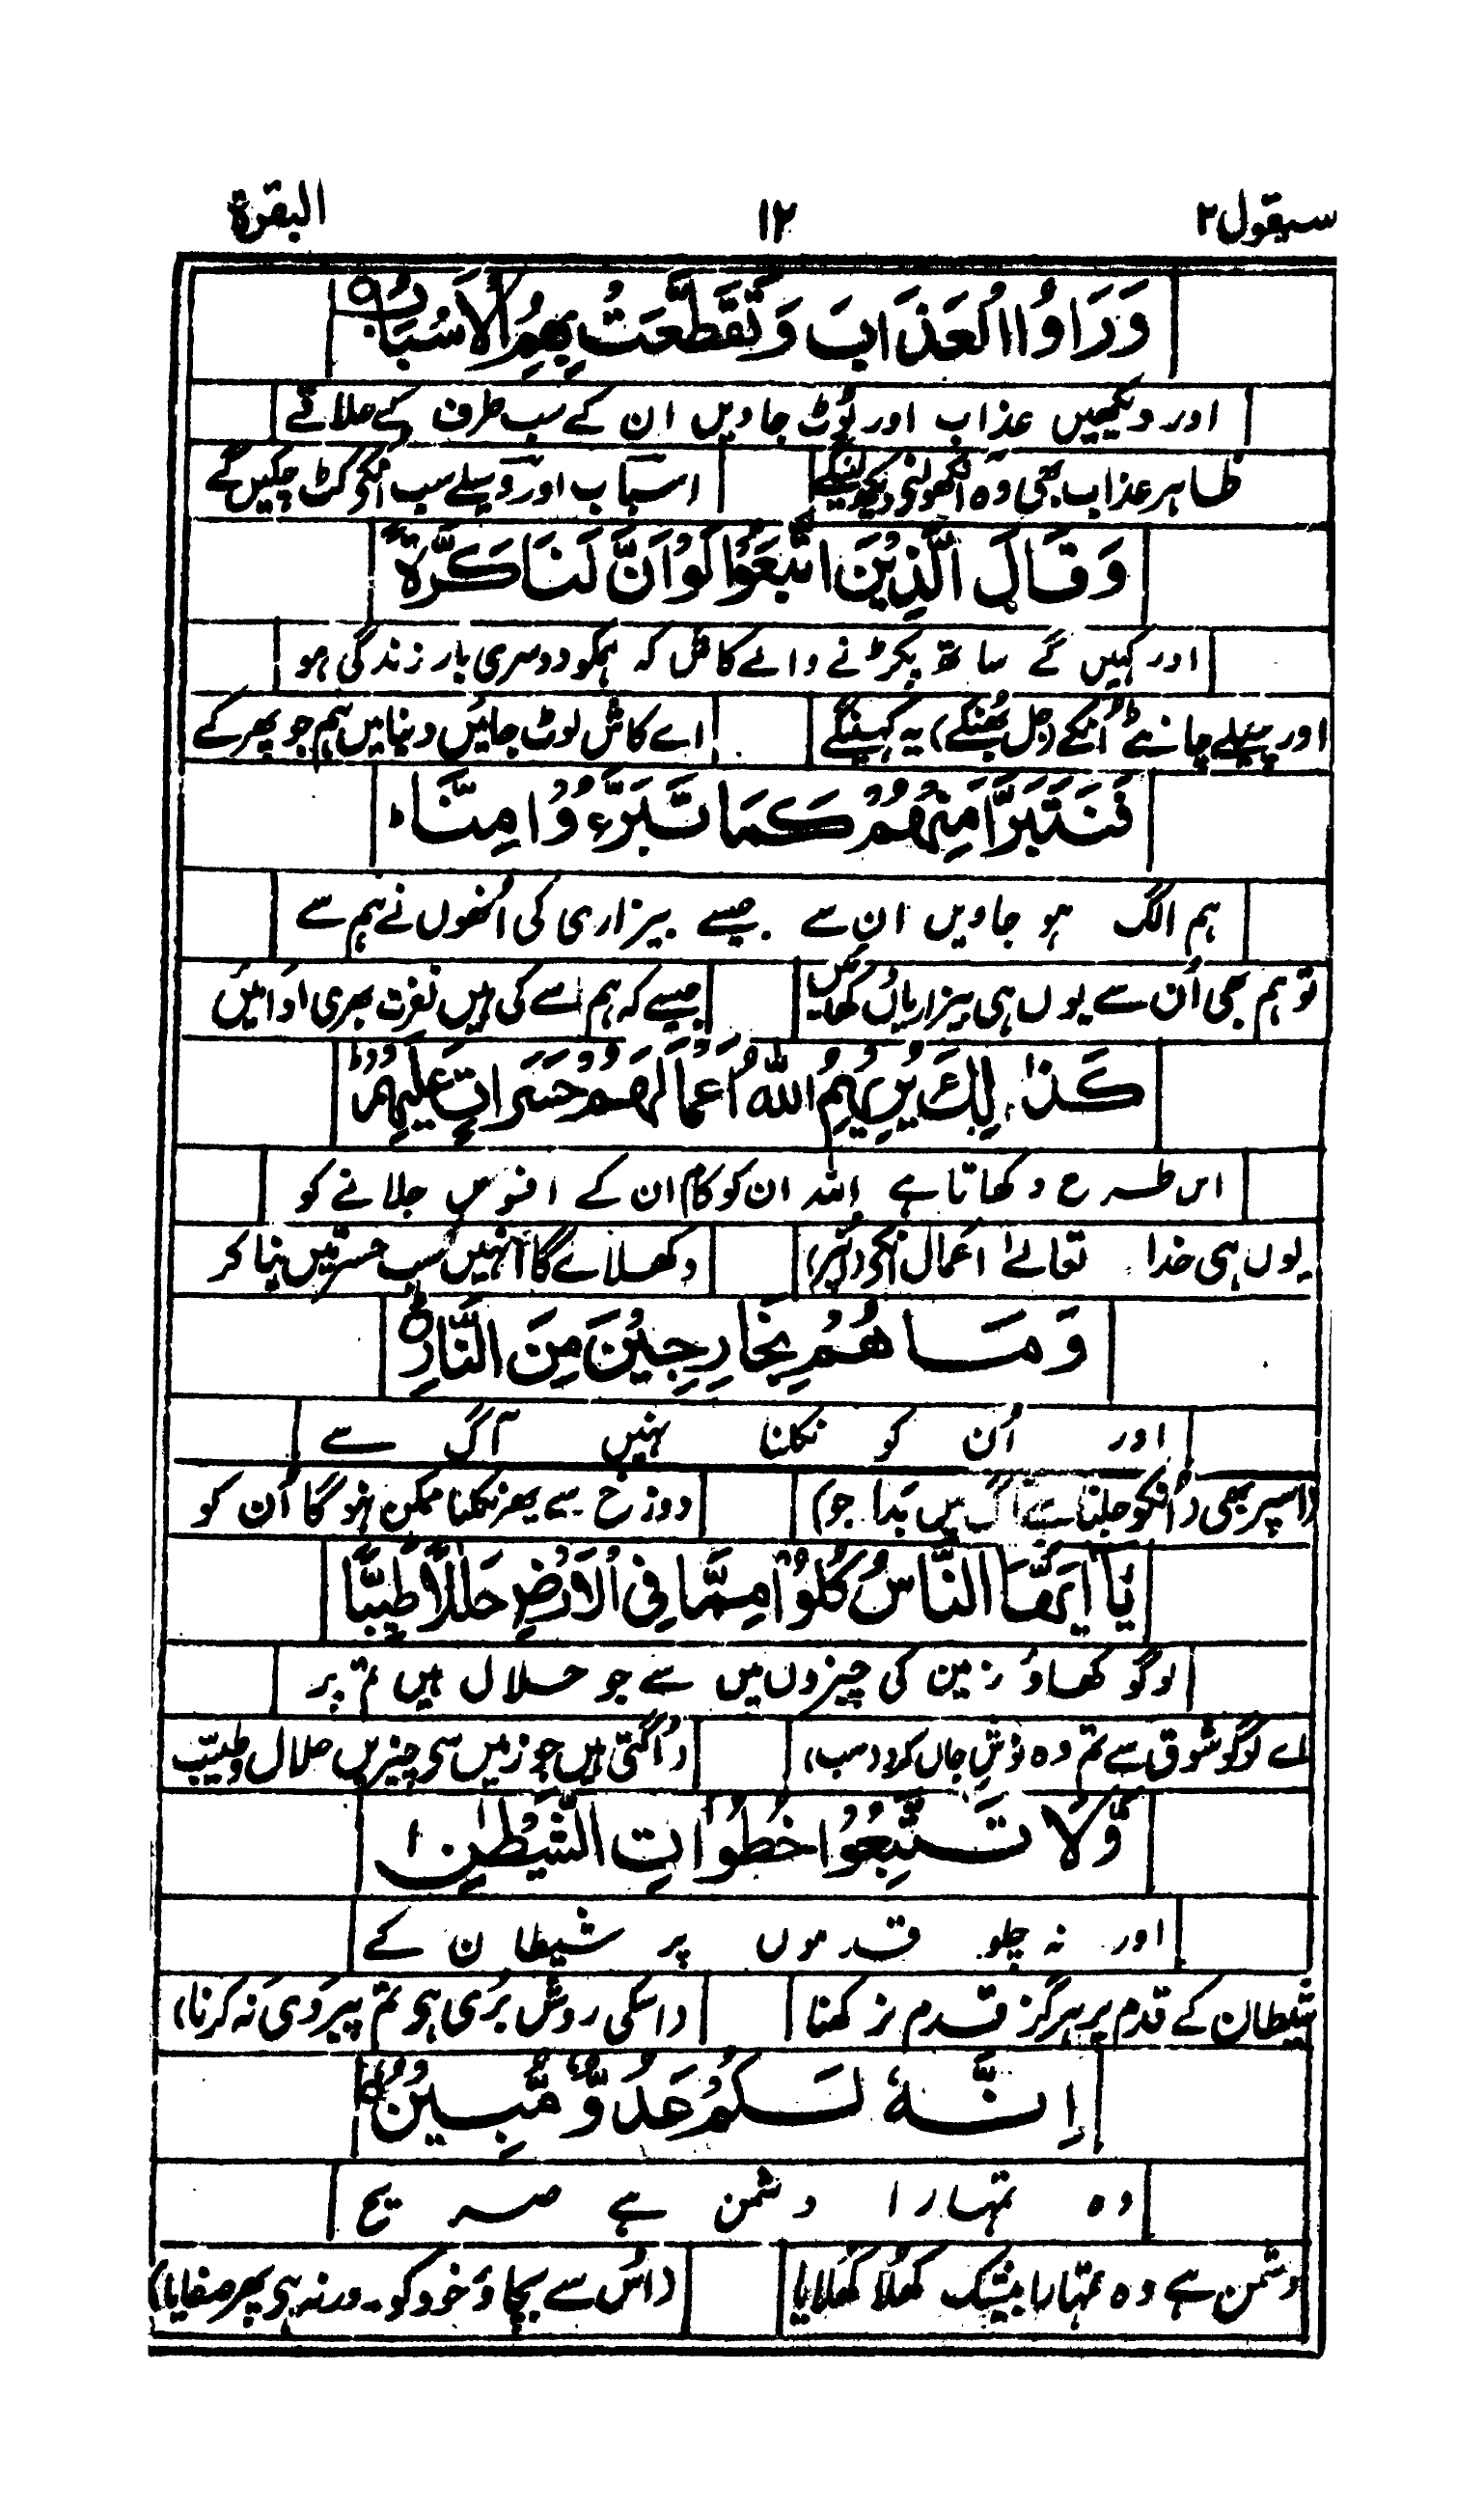 سیقول ۲ ۱۲ البقرة
وَرَاَوُا الْعَذَابَ وَتَقَطَّعَتْ بِهِمُ الْاَسْبَابُ
اور دیکھیں عذاب اور ٹوٹ جاویں ان کے سب طرف کے علاقے
ظاہر عذاب بھی وہ آنکھوں دیکھ لینگے اسباب اور وسیلے سب انکے کٹ چکیں گے
وَقَالَ الَّذِيْنَ اتَّبَعُوْا لَوْ اَنَّ لَنَا كَرَّةً
اور کہیں گے ساتھ پکڑنے والے کاش کہ ہمکو دوسری بار زندگی ہو
اور چیلے چانٹے اُنکے (جل بھنکے) یہ کہینگے اے کاش لوٹ جائیں دنیا میں ہم جو پھر کے
فَنَتَبَرَّاَ مِنْهُمْ كَمَا تَبَرَّءُوْا مِنَّا
ہم الگ ہو جاویں ان سے جیسے بیزاری کی انھوں نے ہم سے
تو ہم بھی اُن سے یوں ہی بیزاریاں دکھائیں جیسے کہ ہم سے کی ہیں نفرت بھری ادائیں
كَذٰلِكَ يُرِيْهِمُ اللّٰهُ اَعْمَالَهُمْ حَسَرَاتٍ عَلَيْهِمْ
اس طرح دکھاتا ہے اللہ ان کو کام ان کے افسوس جلانے کو
یوں ہی خدا تعالےٰ اعمال انکے (اکثر) دکھلائے گا انہیں سب حسرتیں بنا کر
وَمَا هُمْ بِخَارِجِيْنَ مِنَ النَّارِ
اور اُن کو نکلنا نہیں آگ سے
(اسپر بھی) (اُنکو جلنا ہے آگ میں بَدا جو) دوزخ سے پھر نکلنا ممکن نہو گا اُن کو
يٰاَيُّهَا النَّاسُ كُلُوْا مِمَّا فِى الْاَرْضِ حَلٰلًا طَيِّبًا
لوگو کھاؤ زمین کی چیزوں میں سے جو حلال ہیں تم پر
اے لوگو شوق سے تم وہ نوشِ جاں کرو (سب) (اُگتی ہیں جو زمیں سے چیزیں حلال و طیّب
وَّلَا تَتَّبِعُوْا خُطُوٰاتِ الشَّيْطٰنِ
اور نہ چلو قدموں پر شیطان کے
شیطان کے قدم پر ہرگز قدم نرکھنا (اسکی روش بُری ہے تم پیروی نہ کرنا)
اِنَّهٗ لَكُمْ عَدُوٌّ مُّبِيْنٌ
وہ تمہارا دشمن ہے صریح
دشمن ہے وہ تمہارا بیشک کھلا کھلایا (اس سے بچاؤ خود کو۔ ورنہ ہے پھر صفایا)